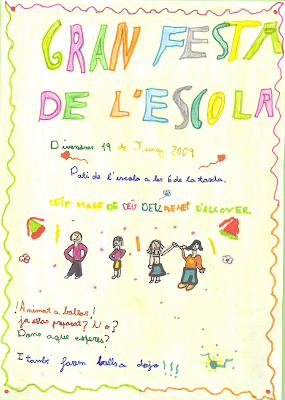 GRAN FESTA
DE L'ESCOLA
Divendres 19 de Juny 2009
Pati de l'escola a les 6 de la tarda.
CEIP MARE DE DÉU DEL REMEI D'ALCOVER.
¡Animat a ballar!
ja estas preparat? No?
Dons aque esperes?
I també farem balls a dojo!!!